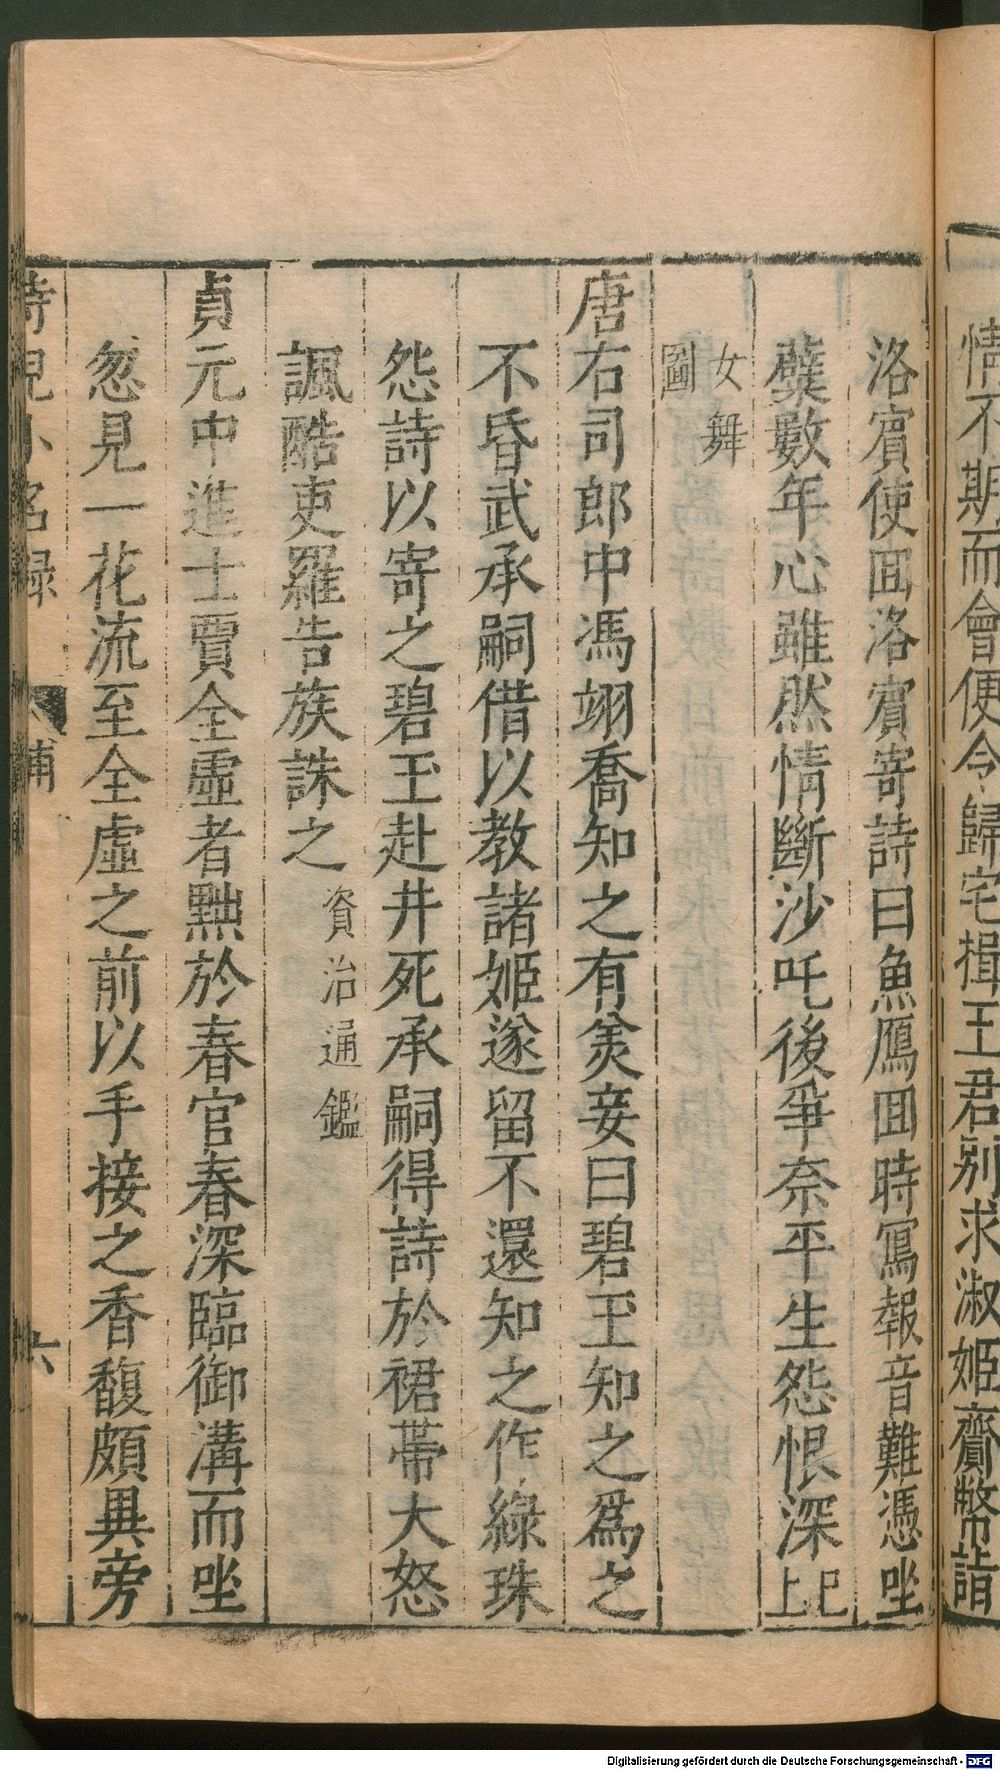 情不期而會便令歸宅揖王君別求淑姬齎幣詣
洛濵使囬洛濵寄詩曰魚鴈囬時寫報音難憑唑
蘖數年心雖然情斷沙吒後爭奈平生怨恨深已上
女舞
圖
唐右司郎中馮翊喬知之有美妾曰碧玉知之爲之
不昏武承嗣借以教諸姬遂留不還知之作綠珠
怨詩以寄之碧玉赴井死承嗣得詩於裙帶大怒
諷酷吏羅告族誅之資治通鑑
貞元中進士賈全虛者黜於春官春深臨御溝而唑
忽見一花流至全虛之前以手接之香馥頗異旁
侍兒小名録 補 六
Digitalisierung gefördert durch die Deutsche Forschungsgemeinschaft - DFG